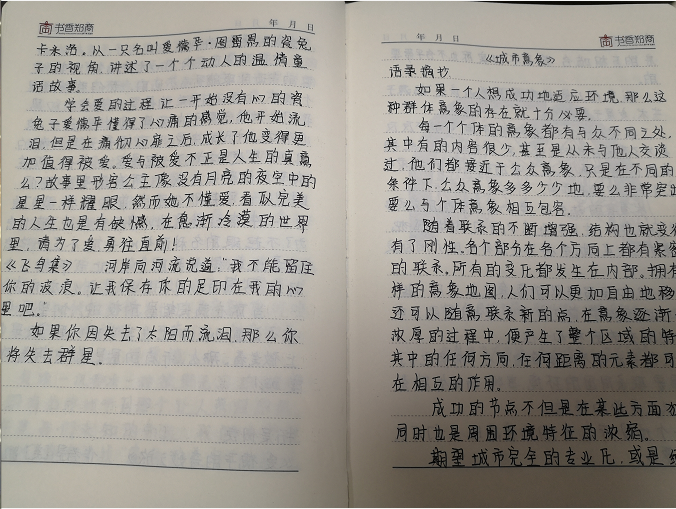 书香知商
年 月 日
卡米洛。以一只名叫爱德华·图雷恩的瓷兔
子的视角,讲述了一个个动人的温情童
话故事。
学会爱的过程让一开始没有心的瓷
兔子爱德华懂得了心痛的感觉,他开始流
泪,但是在痛彻心扉之后,成长了他变得更
加值得被爱。爱与被爱不正是人生的真意
么?故事里形容公主像没有月亮的夜空中的
星星一样耀眼,然而她不懂爱,看似完美
的人生也是有缺憾,在急渐冷漠的世界
里,请为了爱,勇往直前!
《飞鸟集》 河岸向河流说道:“我不能留住
你的波浪。让我保存你的足印在我的心
里吧。”
如果你因失去了太阳而流泪,那么你
将失去群星。
年 月 日
书香知商
《城市意象》
语录摘抄
如果一个人想成功地适应环境,那么这
种群体意象的存在就十分必要。
每一个个体的意象都有与众不同之处,
其中有的内容很少,甚至是从未与他人交谈
过,他们都接近于公众意象,只是在不同的
条件下,公众意象多多少少地,要么非常突出
要么与个体意象相互包容。
随着联系的不断增强,结构也就变得
有了刚性。各个部分在各个方向上都有紧密
的联系,所有的变化都发生在内部。拥有
样的意象地图,人们可以更加自由地移
还可以随意联系新的点,在意象逐渐
浓厚的过程中,便产生了整个区域的特
其中的任何方向,任何距离的元素都可
在相互的作用。
成功的节点不但是在某些方面
同时也是周围环境特征的浓缩。
期望城市完全的专业化,或是